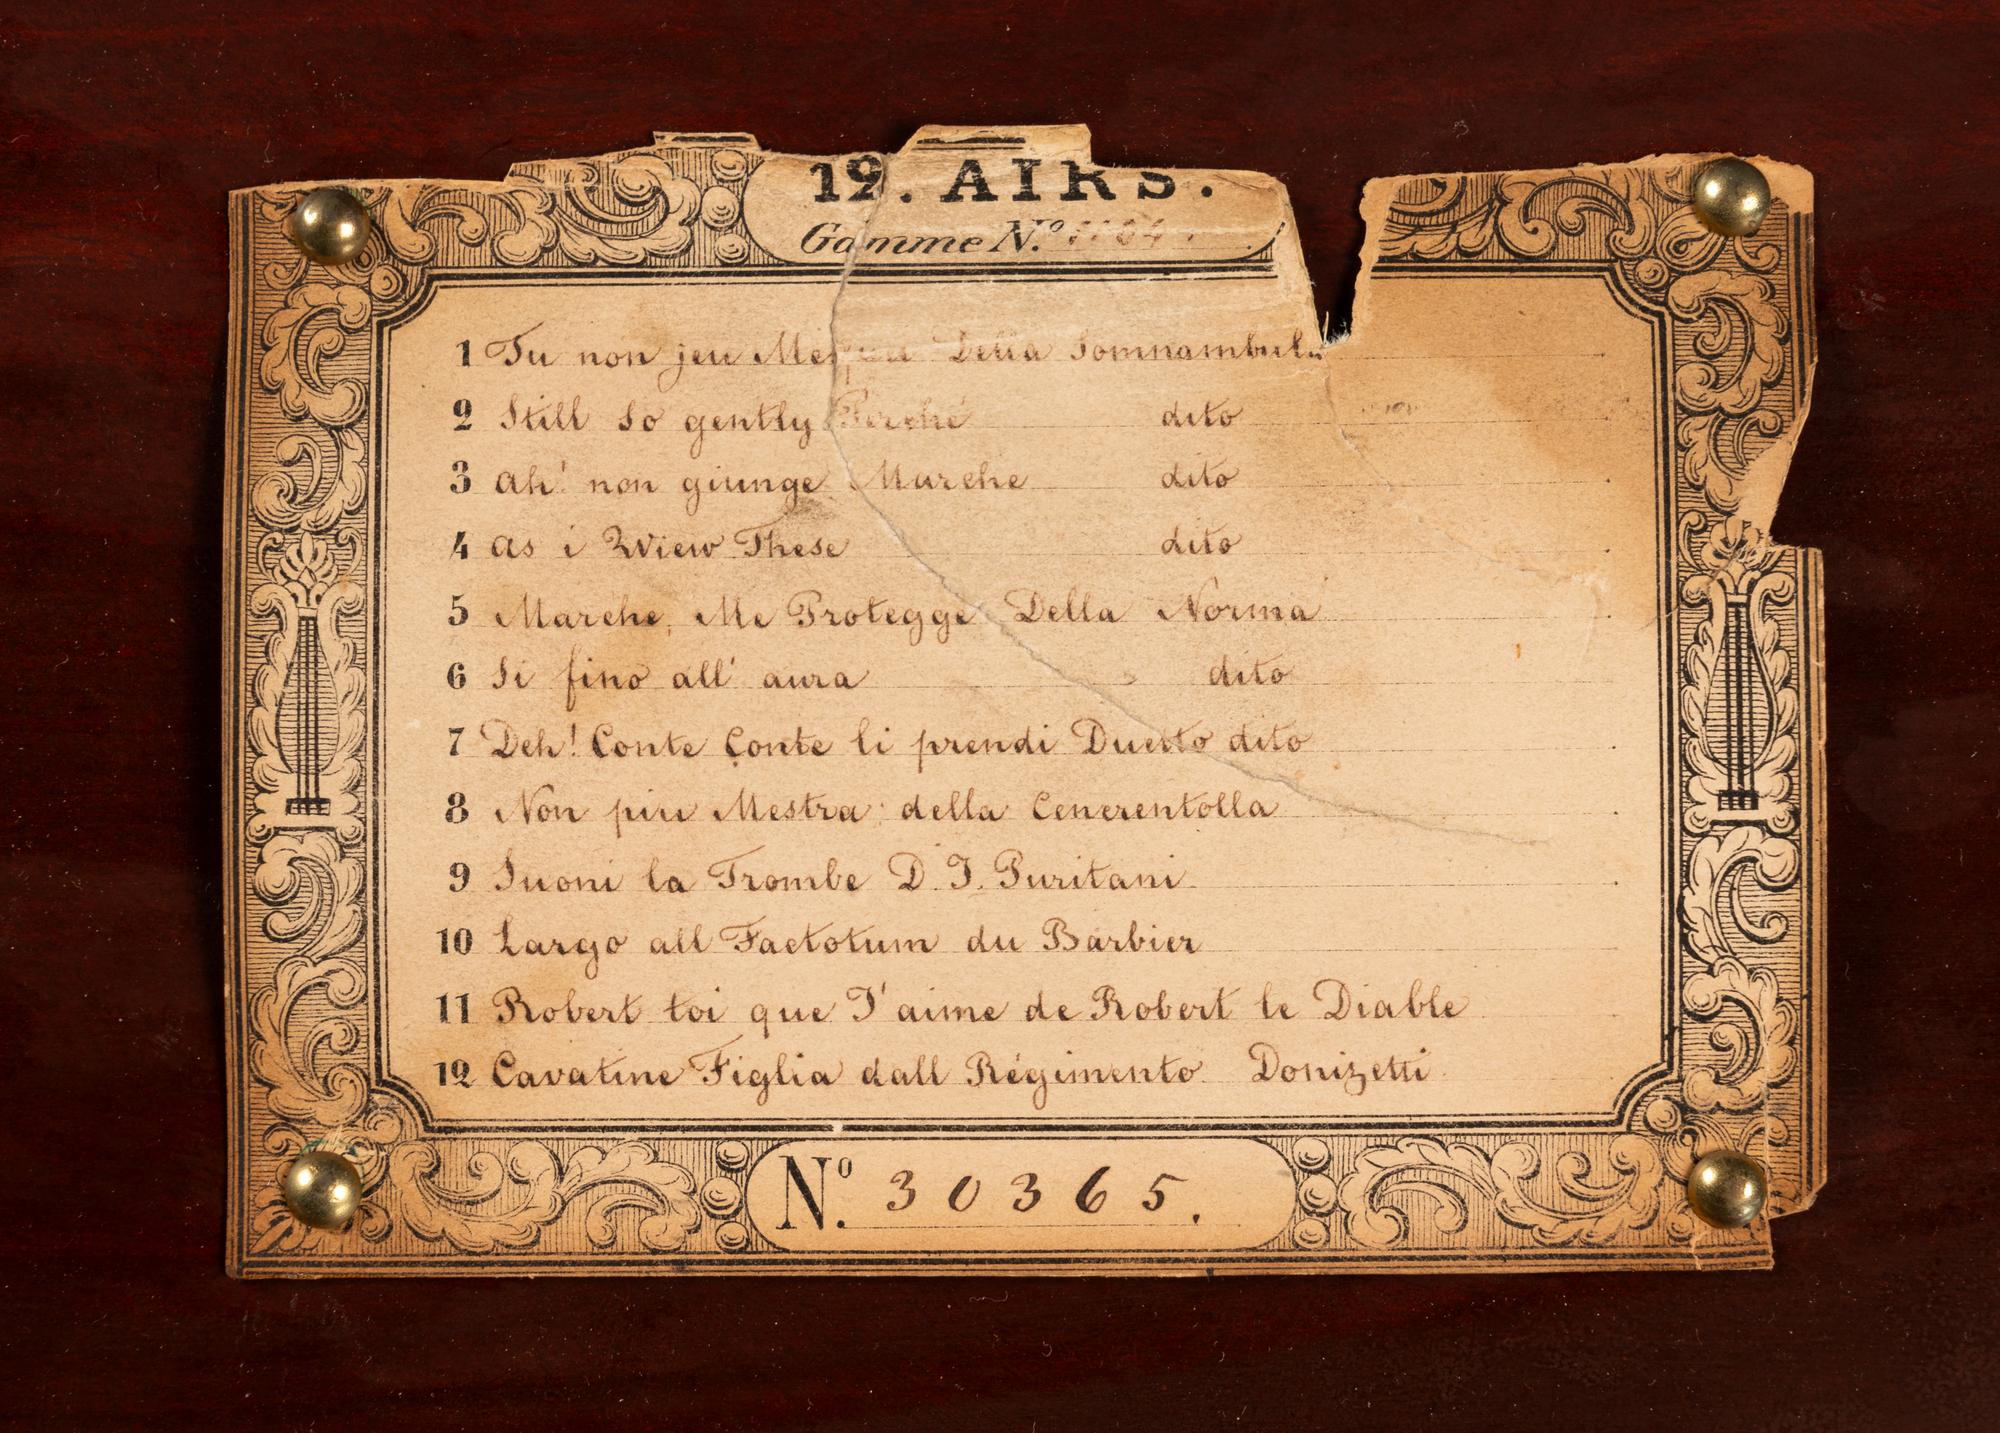 12. AIRS.
Gamme N.º
1 Tu non jeu Della Somnambula
2 Still so gently Perché dito
3 Ah! non giunge Marche dito
4 As i View These dito
5 Marche, Me Protegge Della Norma
6 Si fino all' aura dito
7 Deh! Conte Conte li prendi Duetto dito
8 Non piu Mestra della Cenerentolla
9 Suoni la Trombe D. I. Puritani
10 Largo all Factotum du Barbier
11 Robert toi que J'aime de Robert le Diable
12 Cavatine Figlia dall Régimento Donizetti
Nº. 30365.